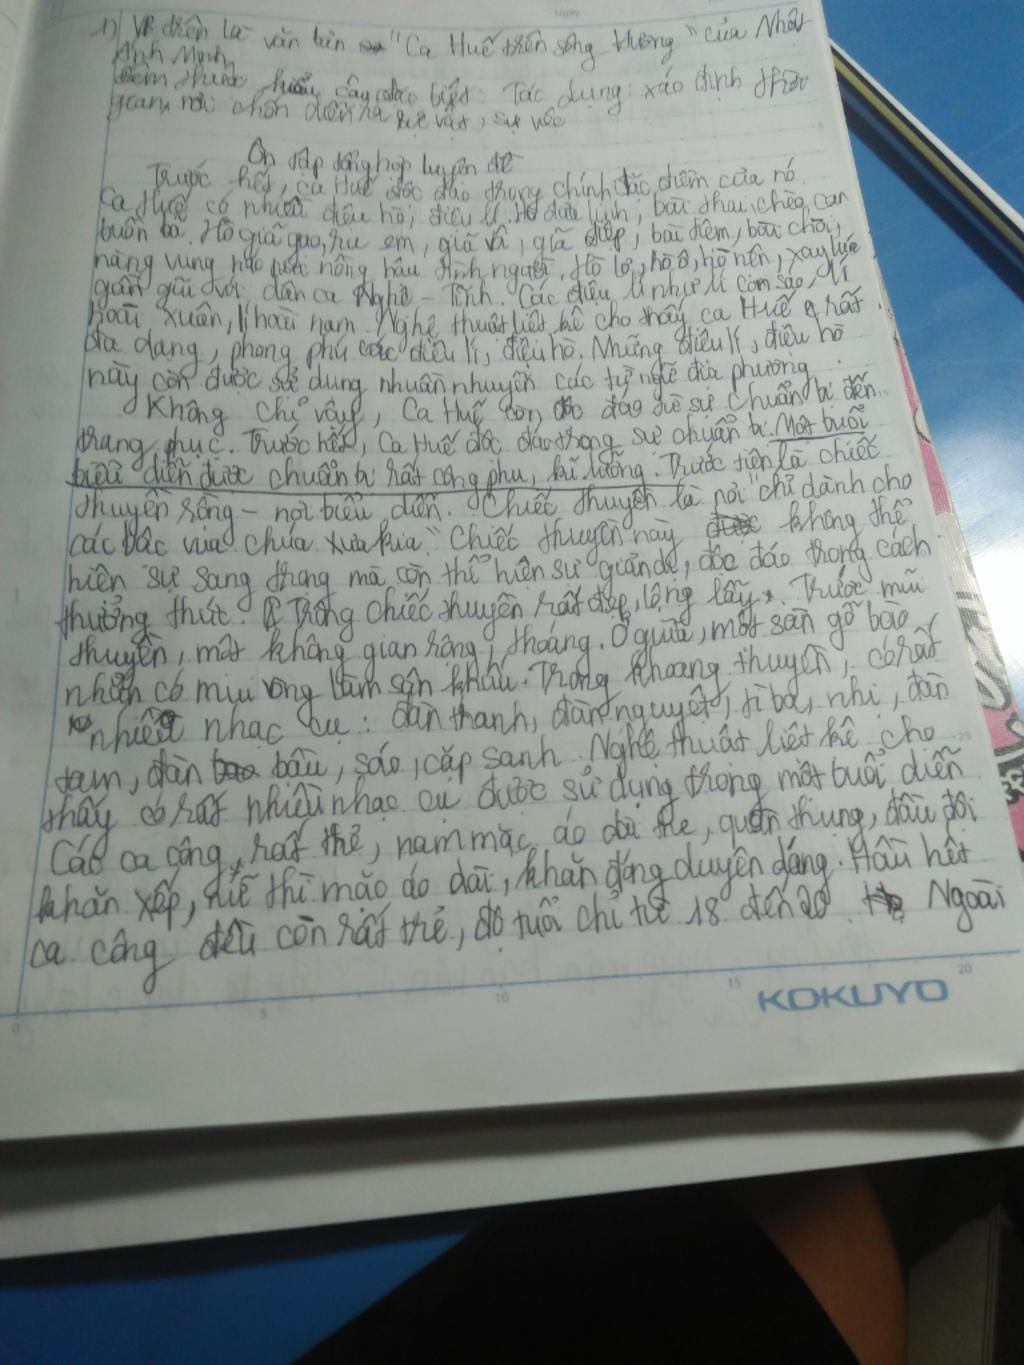 1) VB trên là văn bản "Ca Huế trên sông Hương" của
Ánh Minh
Đêm thuộc kiểu câu đặc biệt. Tác dụng: xác định thời
gian, nơi chốn diễn ra sự vật, sự việc
Ôn tập tổng hợp luyện đề
Trước hết, ca Huế độc đáo trong chính đặc điểm của nó.
Ca Huế có nhiều điệu hò, điệu lí. Hò đưa linh, bài thai, chèo cạn
buồn bã. Hò giã gạo, ru em, giã vôi, giã điệp, bài chòi,
nàng vung náo nức nồng hậu tình người. Hò lơ, hò ô, hò nện, xay lúa
gần gũi với dân ca Nghệ - Tĩnh. Các điệu lí như lí con sáo, lí
hoài xuân, lí hoài nam. Nghệ thuật liệt kê cho thấy ca Huế rất
đa dạng, phong phú các điệu lí, điệu hò. Những điệu lí, điệu hò
này còn được sử dụng nhuần nhuyễn các từ ngữ địa phương.
Không chỉ vậy, Ca Huế còn độc đáo từ sự chuẩn bị đến
trang phục. Trước hết, Ca Huế độc đáo trong sự chuẩn bị. Một buổi
biểu diễn được chuẩn bị rất công phu, kĩ lưỡng. Trước tiên là chiếc
thuyền rồng - nơi biểu diễn. Chiếc thuyền là nơi "chỉ dành cho
các bậc vua chúa xưa kia." Chiếc thuyền này không thể
hiện sự sang trọng mà còn thể hiện sự giản dị, độc đáo trong cách
thưởng thức. Trông chiếc thuyền rất đẹp, lộng lẫy. Trước mũi
thuyền, một không gian rộng, thoáng. Ở giữa, một sàn gỗ bào
nhẵn có mui vòng làm sân khấu. Trong khoang thuyền, có rất
nhiều nhạc cụ: đàn tranh, đàn nguyệt, tì bà, nhị, đàn
tam, đàn bầu, sáo, cặp sanh. Nghệ thuật liệt kê cho
thấy có rất nhiều nhạc cụ được sử dụng trong một buổi diễn.
Các ca công rất trẻ, nam mặc áo dài the, quần thụng, đầu đội
khăn xếp, nữ thì mặc áo dài, khăn đóng duyên dáng. Hầu hết
ca công đều còn rất trẻ, độ tuổi chỉ từ 18 đến 20. Ngoài
0 5 10 15 20
25
KOKUYO